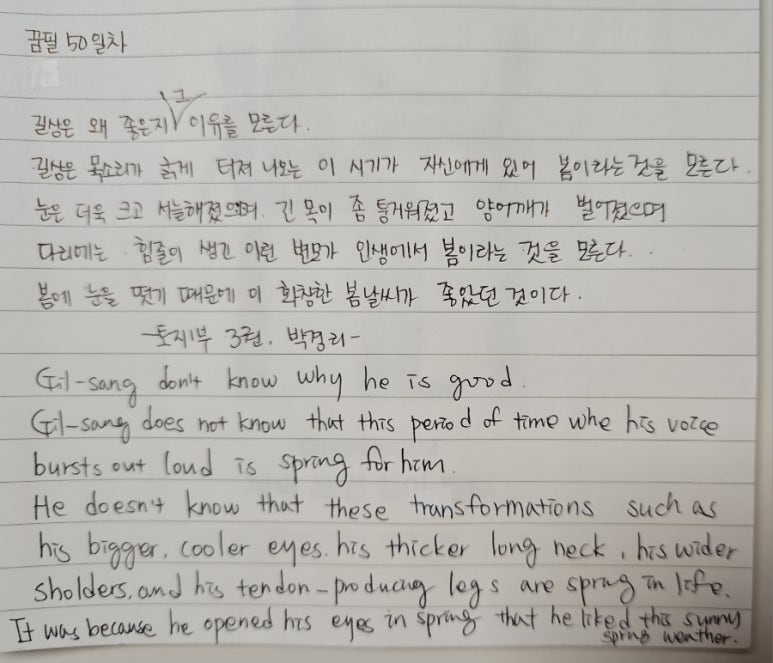 꿈필 50일차
길상은 왜 좋은지 그 이유를 모른다.
길상은 목소리가 굵게 터져 나오는 이 시기가 자신에게 있어 봄이라는 것을 모른다.
눈은 더욱 크고 서늘해졌으며. 긴 목이 좀 퉁거워졌고 양어깨가 벌어졌으며
다리에는 힘줄이 생긴 이런 변모가 인생에서 봄이라는 것을 모른다.
봄에 눈을 떳기 때문에 이 화창한 봄날씨가 좋았던 것이다.
-토지1부 3권. 박경리-
Gil-sang don't know why he is good.
Gil-sang does not know that this period of time whe his voice
bursts out loud is spring for him.
He doesn't know that these transformations such as
his bigger, cooler eyes, his thicker long neck, his wider
sholders, and his tendon-producing legs are spring in life.
It was because he opened his eyes in spring that he liked this sunny
spring weather.